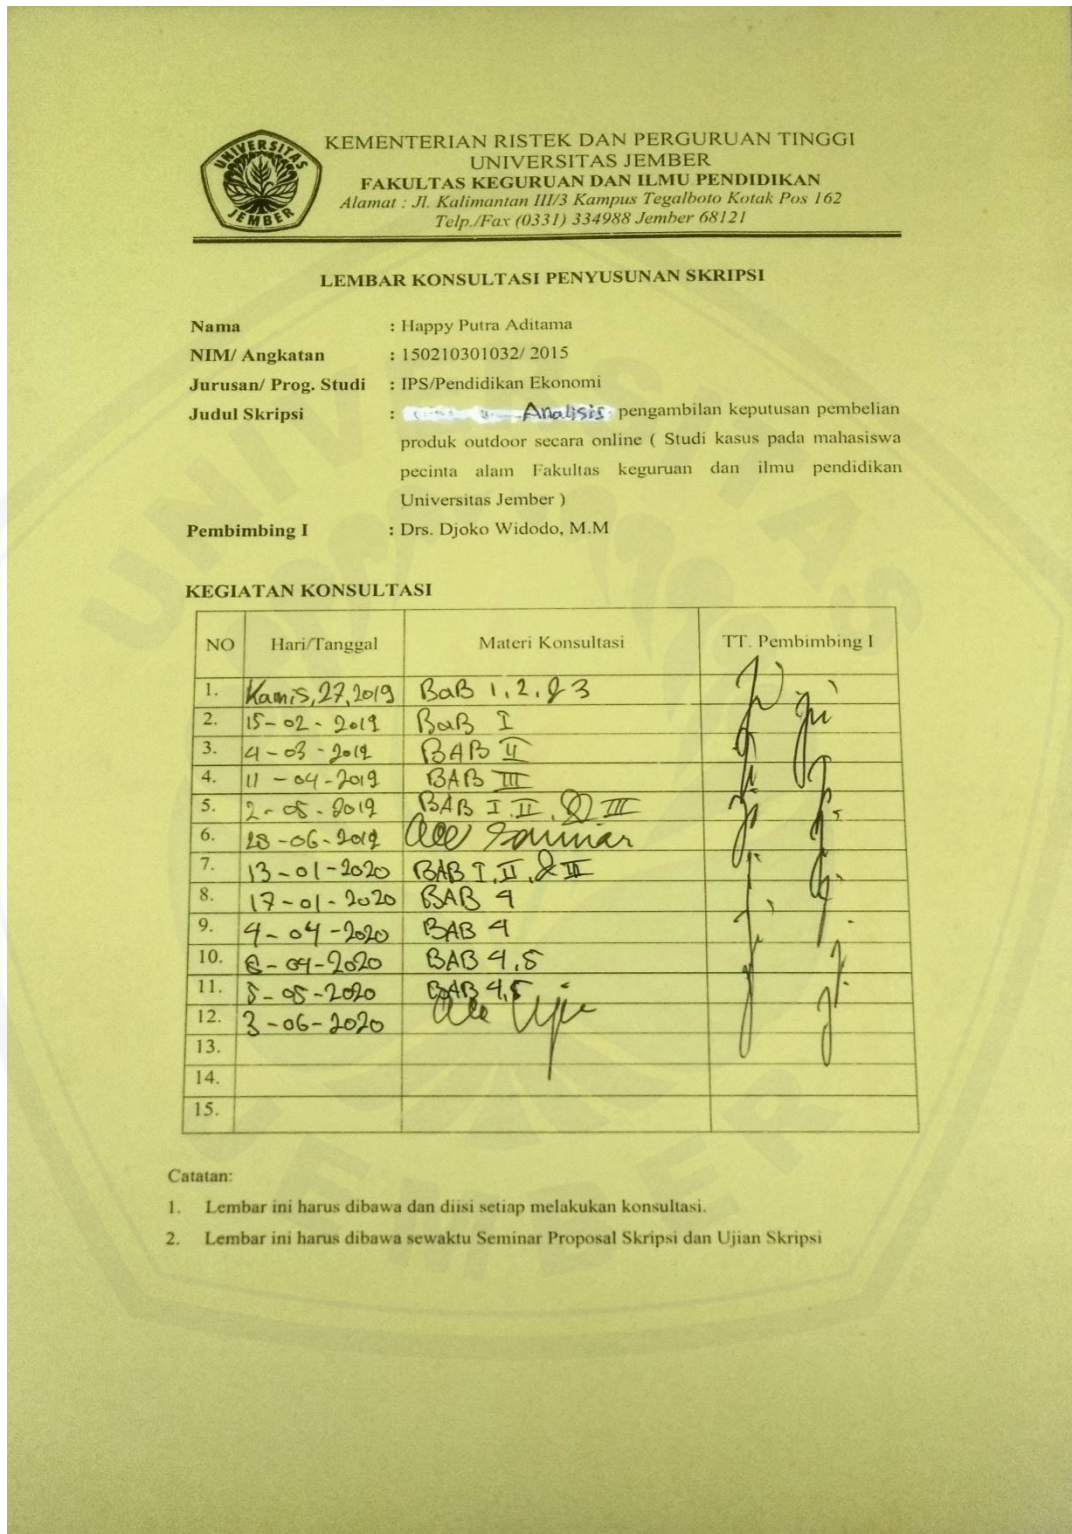 UNIVERSITAS
JEMBER
KEMENTERIAN RISTEK DAN PERGURUAN TINGGI
UNIVERSITAS JEMBER
FAKULTAS KEGURUAN DAN ILMU PENDIDIKAN
Alamat : Jl. Kalimantan III/3 Kampus Tegalboto Kotak Pos 162
Telp./Fax (0331) 334988 Jember 68121
LEMBAR KONSULTASI PENYUSUNAN SKRIPSI
Nama : Happy Putra Aditama
NIM/ Angkatan : 150210301032/ 2015
Jurusan/ Prog. Studi : IPS/Pendidikan Ekonomi
Judul Skripsi : Analisis pengambilan keputusan pembelian
produk outdoor secara online ( Studi kasus pada mahasiswa
pecinta alam Fakultas keguruan dan ilmu pendidikan
Universitas Jember )
Pembimbing I : Drs. Djoko Widodo, M.M
KEGIATAN KONSULTASI
NO Hari/Tanggal Materi Konsultasi TT. Pembimbing I
1. Kamis, 27, 2019 BaB 1, 2, & 3
2. 15-02-2019 BaB I
3. 4-03-2019 BAB II
4. 11-04-2019 BAB III
5. 2-05-2019 BAB I, II, & III
6. 28-06-2019 acc Seminar
7. 13-01-2020 BAB I, II, & III
8. 17-01-2020 BAB 4
9. 4-04-2020 BAB 4
10. -04-2020 BAB 4,5
11. 5-05-2020 BAB 4,5
12. 3-06-2020 acc Ujian
13.
14.
15.
Catatan:
1. Lembar ini harus dibawa dan diisi setiap melakukan konsultasi.
2. Lembar ini harus dibawa sewaktu Seminar Proposal Skripsi dan Ujian Skripsi